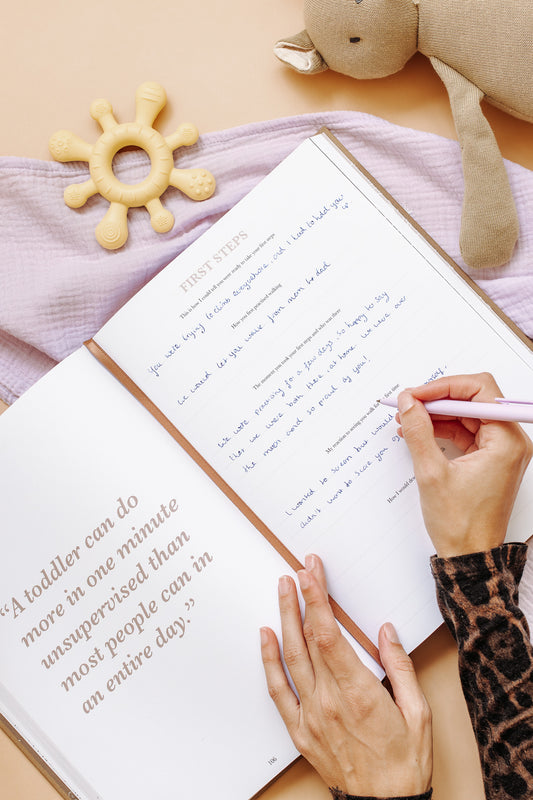 FIRST STEPS
This is how I could tell you were ready to take your first steps
You were trying to climb everywhere, and I had to hold you
How you first practised walking
We would let you walk from mom to dad
The moment you took your first steps and who was there
We were practising for a few days, so happy to say
that we were both there, at home. We were over
the moon and so proud of you!
My reaction to seeing you walk first time
I wanted to scream but would
didn't want to scare you
How I would
“A toddler can do
more in one minute
unsupervised than
most people can in
an entire day.”
106